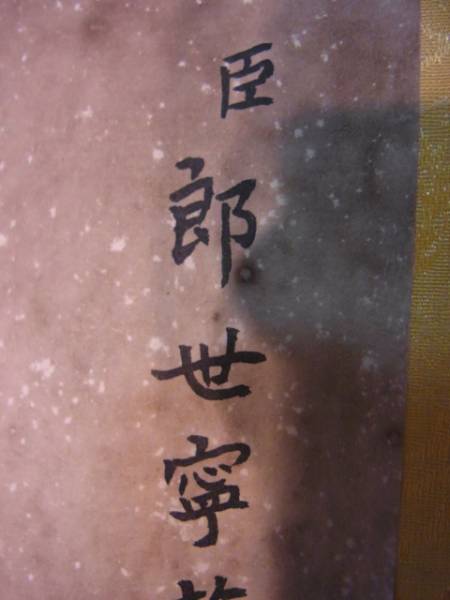 臣郎世寧